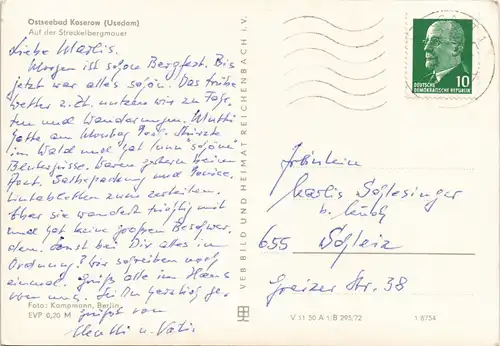 Ostseebad Koserow (Usedom)
Auf der Streckelbergmauer
Liebe Marlis.
Morgen ist schon Bergfest. Bis
jetzt war alles schön. Das trübe
Wetter z. Zt. nutzen wir zu Fahr-
ten und Wanderungen. Mutti
hatte am Montag
im Wald und hat nun "schöne"
Blutergüsse. Waren gestern beim
Arzt. Salbepackung und
tabletten zum
Aber sie wandert kräftig mit
und hat keine großen Beschwer-
den. Sonst bei Dir alles in
Ordnung? Wir schreiben noch
einmal. Grüß alle im Haus
von uns. Sei Du herzlich ge-
grüßt von
Mutti u. Vati
Foto: Kampmann, Berlin
EVP 0,20 M
VEB BILD UND HEIMAT REICHENBACH i. V.
DEUTSCHE
DEMOKRATISCHE REPUBLIK
10
Fräulein
Marlis Schlesinger
b.
655 Schleiz
Greizer Str. 38
V 11 50 A 1/B 295/72
1 8754